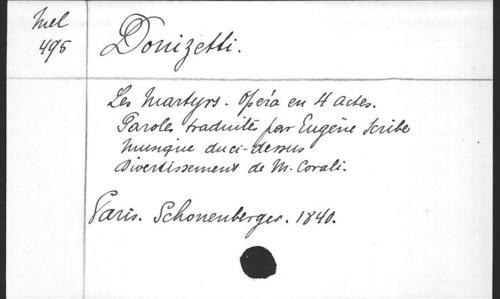 Mel
495
Donizetti.
Les Martyrs. Opéra en 4 actes.
Paroles traduites par Eugène Scribe
Musique du ci-dessus
Divertissement de M. Corali.
Paris. Schonenberger. 1840.